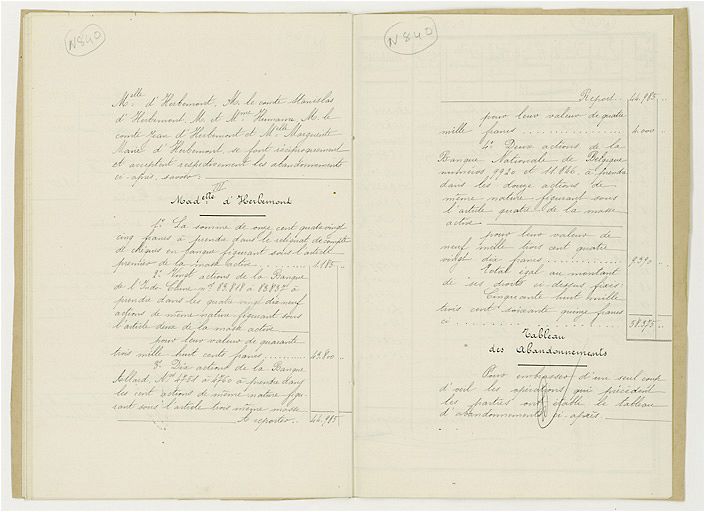 N840
Melle d'Herbemont, M. le comte Stanislas
d'Herbemont, M. et Mme Humann, M. le
comte Jean d'Herbemont et Melle Marguerite
Marie d'Herbemont, se font réciproquement
et acceptent respectivement les abandonnements
ci-après, savoir:
III
Madelle d'Herbemont
1º La somme de onze cent quatre vingt
cinq francs à prendre dans le reliquat de compte
de chèques en banque figurant sous l'article
premier de la masse active . . . 1.185 ..
2º Vingt actions de la Banque
de l'Indo-Chine nos 83.818 à 83.837 à
prendre dans les quatre vingt dix neuf
actions de même nature figurant sous
l'article deux de la masse active
pour leur valeur de quarante
trois mille huit cents francs . . . 43.800 ..
3º Dix actions de la Banque
Allard, Nos 4751 à 4760 à prendre dans
les cent actions de même nature figu-
rant sous l'article trois même masse
A reporter . . 44.985 ..
N840
Report . . 44.985 ..
pour leur valeur de quatre
mille francs . . . 4.000 ..
4º Deux actions de la
Banque Nationale de Belgique
numéros 9920 et 11.846, à prendre
dans les douze actions de
même nature figurant sous
l'article quatre de la masse
active
pour leur valeur de
neuf mille trois cent quatre
vingt dix francs . . . 9.390 ..
Total égal au montant
de ses droits ci-dessus fixés:
Cinquante huit mille
trois cent soixante quinze francs
ci . . . 58.375 ..
Tableau
des Abandonnements
Pour embrasser d'un seul coup
d'œil les opérations qui précèdent
les parties ont établi le tableau
d'abandonnements ci-après